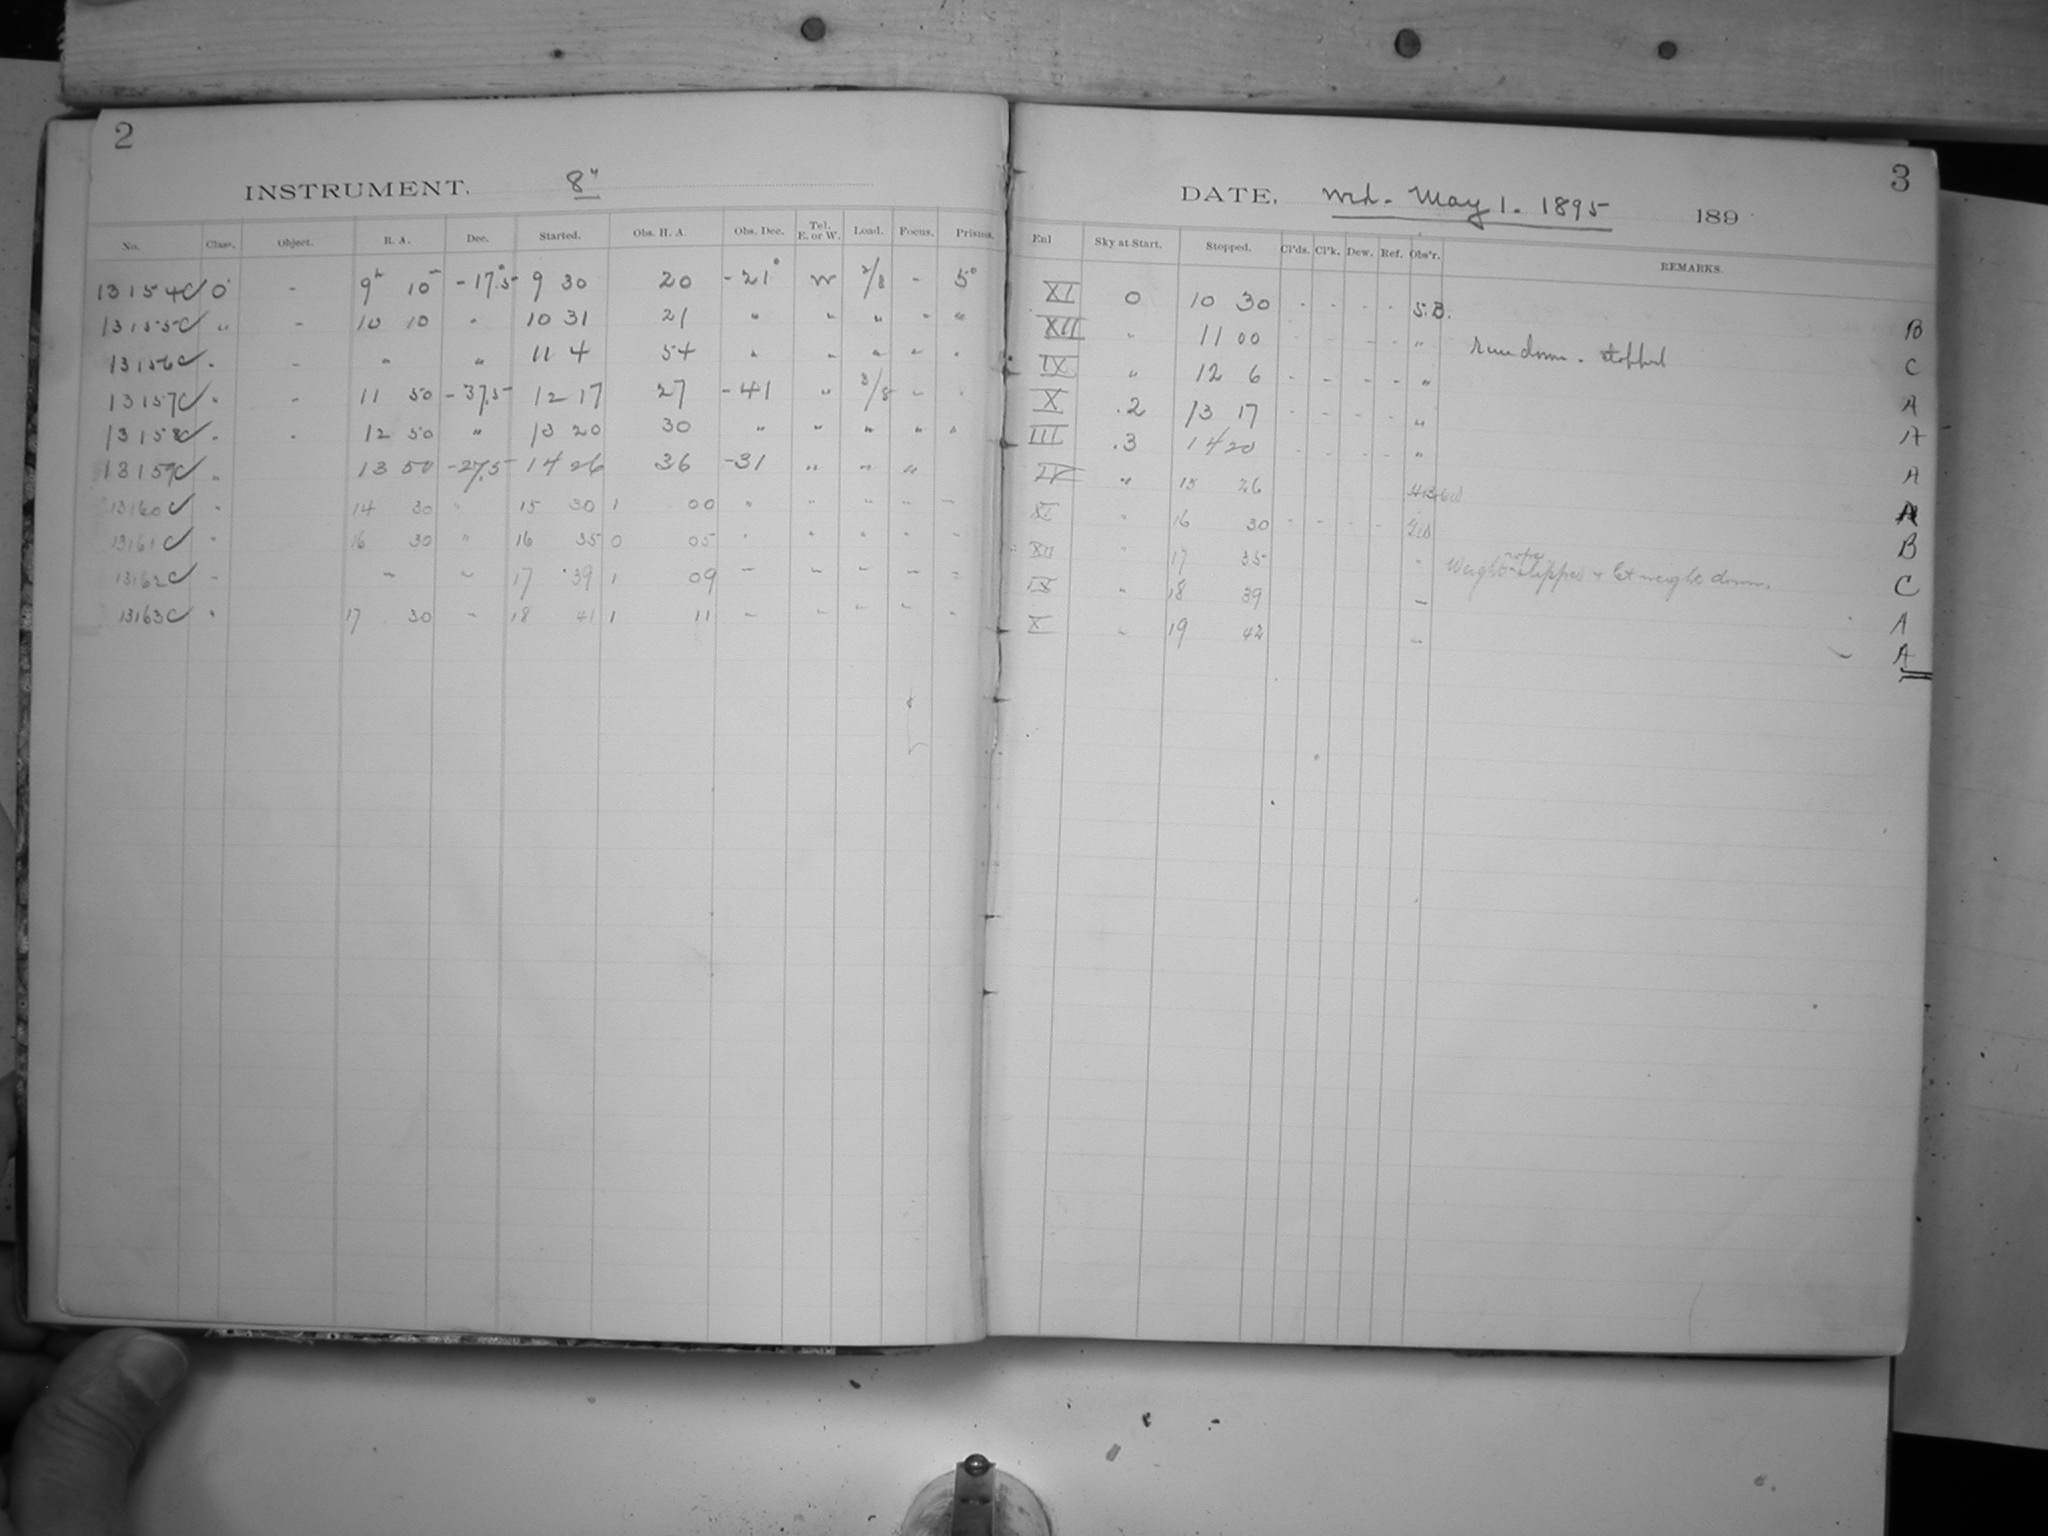 2
INSTRUMENT. 8"
No. Class. Object. R. A. Dec. Started. Obs. H. A. Obs. Dec. Tel. E. or W. Load. Focus. Prisms.
13154C ✓ O - 9h 10m -17.5° 9 30 20 -21° W 2/8 - 5°
13155C ✓ " - 10 10 " 10 31 21 " " " " "
13156C ✓ " - " " 11 4 54 " " " " "
13157C ✓ " - 11 50 -37.5 12 17 27 -41 " 3/8 - "
13158C ✓ " - 12 50 " 13 20 30 " " " " "
13159C ✓ " 13 50 -27.5 14 26 36 -31 " " "
13160C ✓ " 14 30 " 15 30 1 00 " " " - -
13161C ✓ " 16 30 " 16 35 0 05 " " " " "
13162C ✓ " " " 17 39 1 09 " " " " "
13163C ✓ " 17 30 " 18 41 1 11 " " " " "
3
DATE. Wd. May 1. 1895 189
Enl Sky at Start. Stopped. Cl'ds. Cl'k. Dew. Ref. Obs'r. REMARKS.
XI 0 10 30 - - - - S.B.
XII " 11 00 - - - - " Run down. stopped B
IX " 12 6 - - - - " C
X .2 13 17 - - - - " A
III .3 14 20 " A
IV " 15 26 A
XI " 16 30 - - - - A
XII " 17 35 " Weight rope slipped & let weight down. B
IX " 18 39 " C
X " 19 42 " A
A